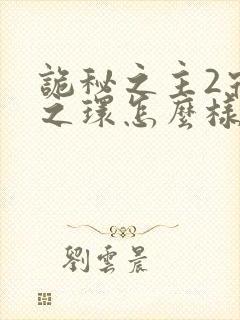 詭秘之主2宿
之環怎麼樣
劉雲晨